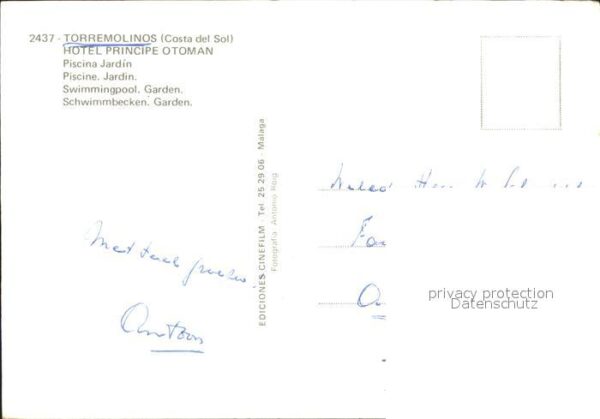 2437 - TORREMOLINOS (Costa del Sol)
HOTEL PRINCIPE OTOMAN
Piscina Jardín
Piscine. Jardin.
Swimmingpool. Garden.
Schwimmbecken. Garden.
EDICIONES CINEFILM - Tel. 25 29 06 - Málaga
Fotografía Antonio Roig
Met
Fa
privacy protection
Datenschutz